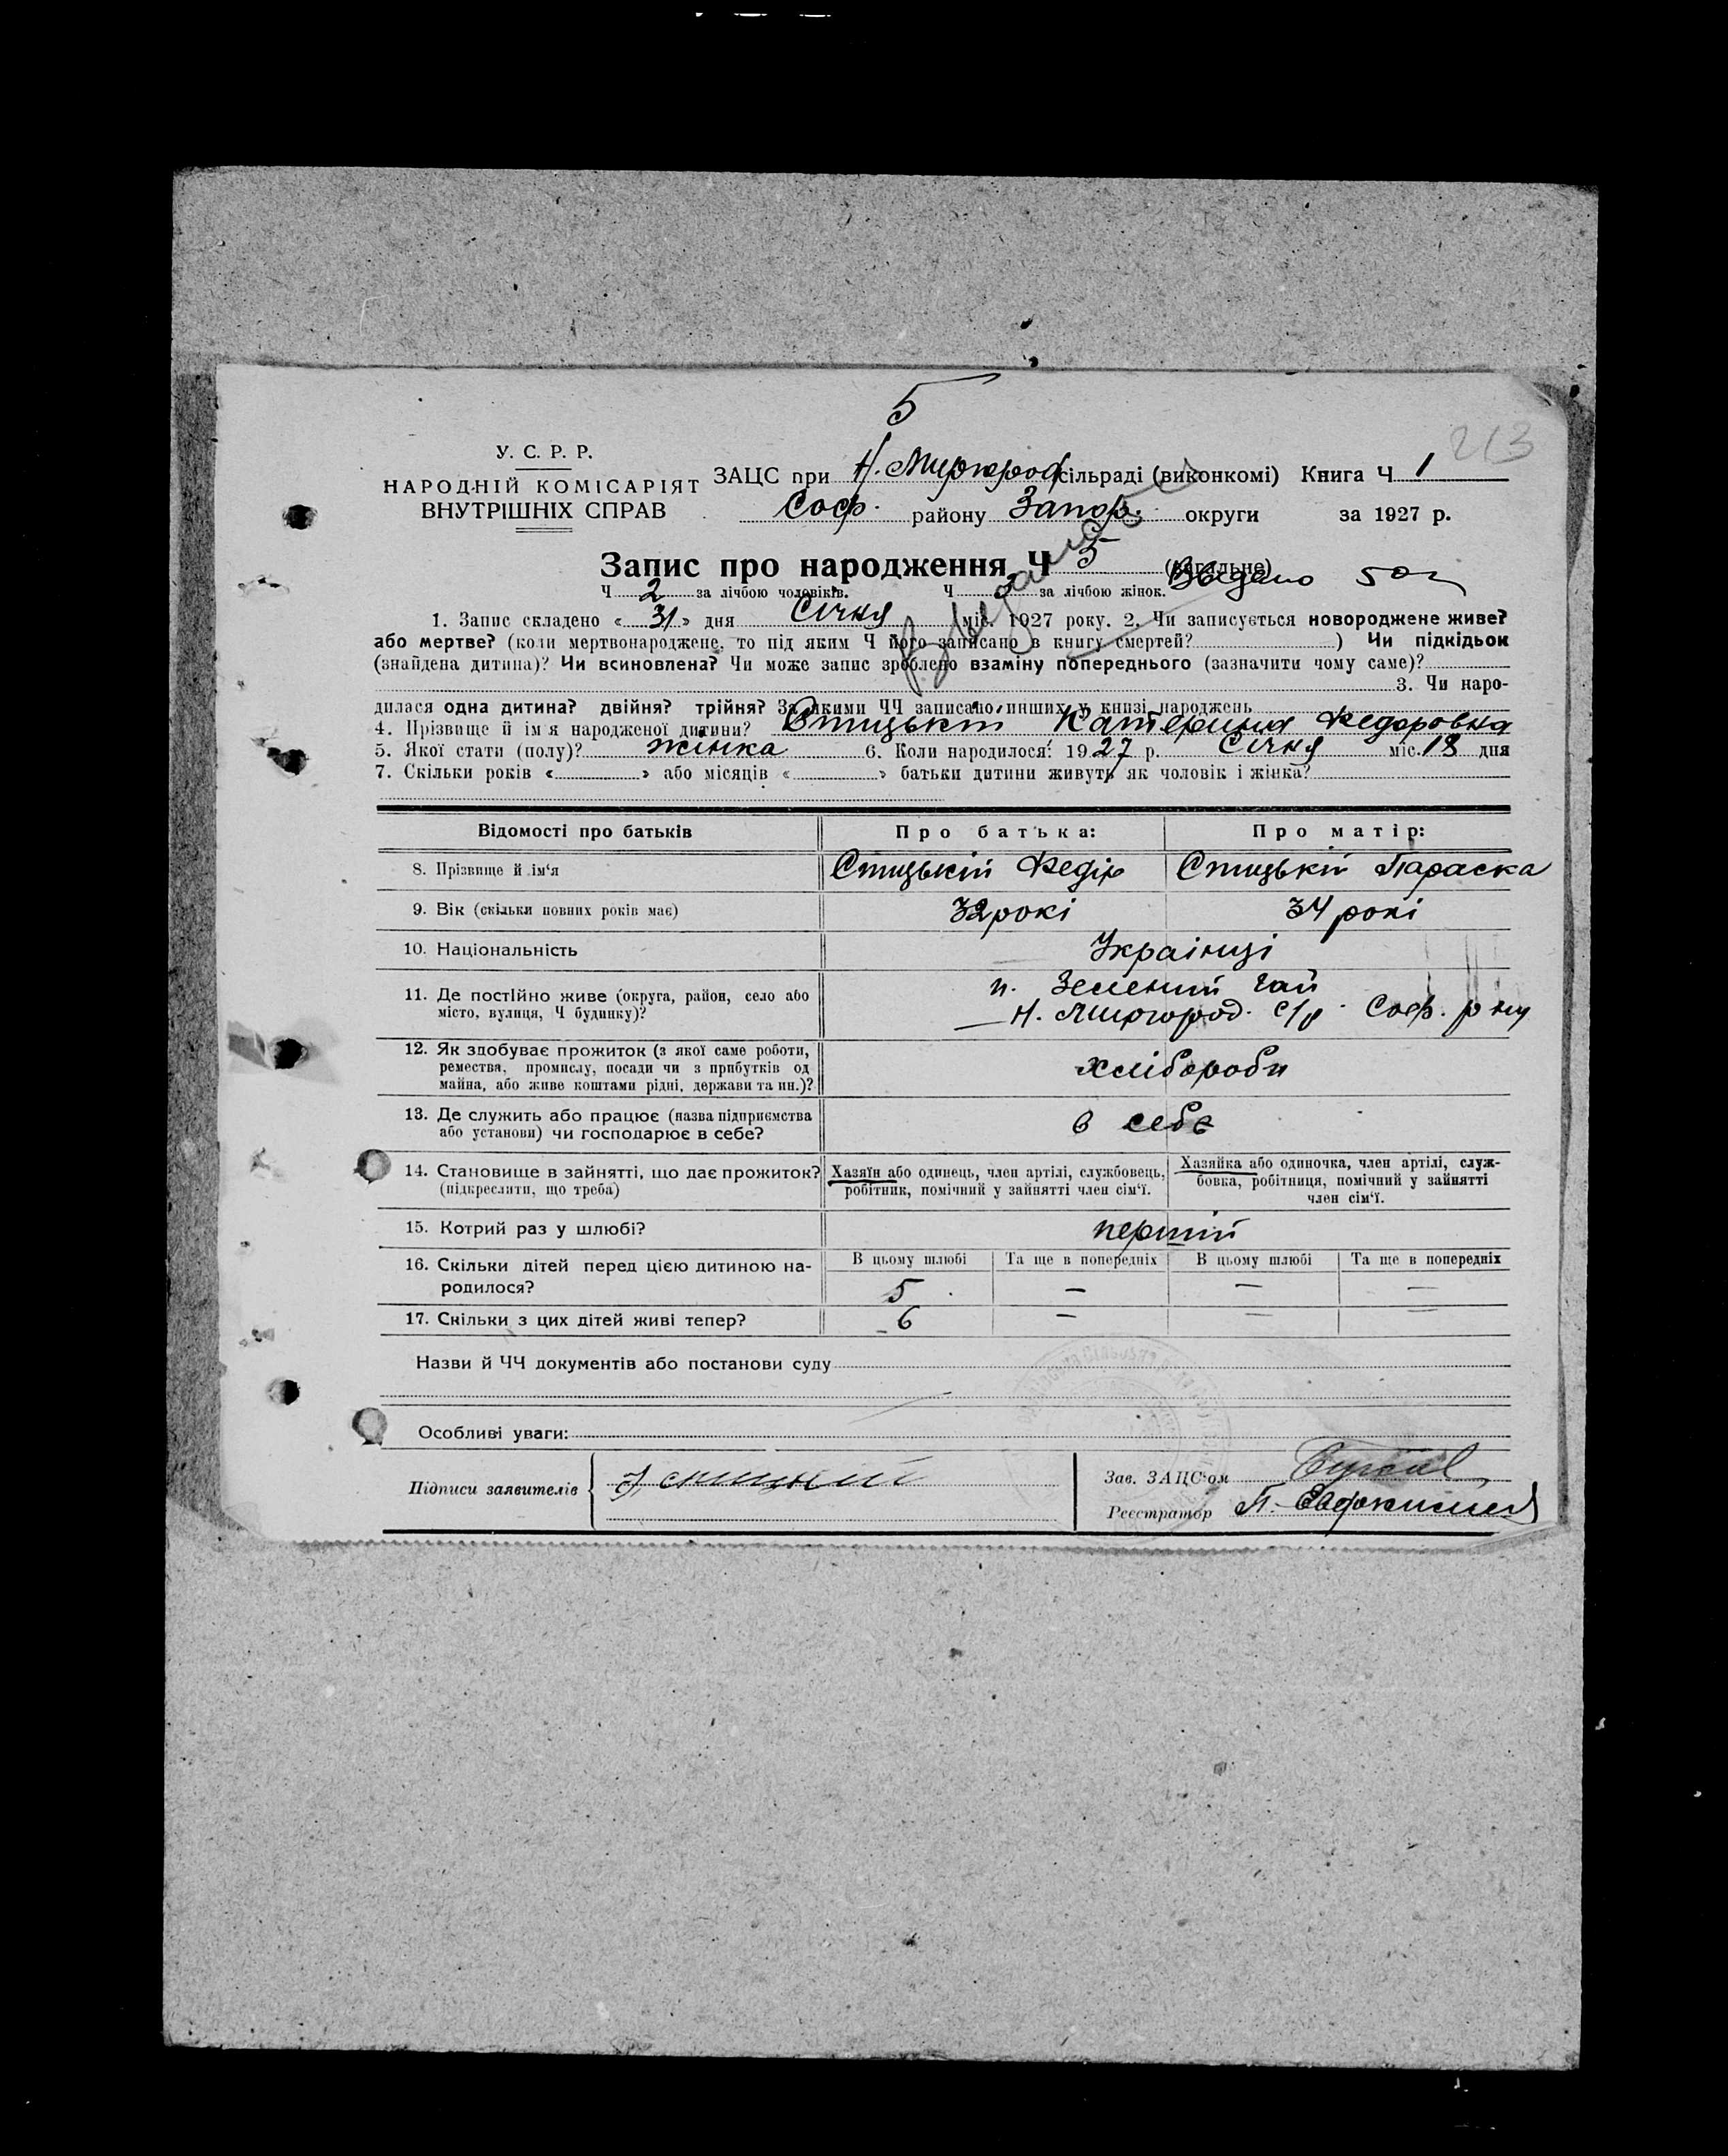 5
213
У. С. Р. Р.
НАРОДНІЙ КОМІСАРІЯТ
ВНУТРІШНІХ СПРАВ
ЗАЦС при Н. Миргород сільраді (виконкомі) Книга Ч 1
Соф. району Запор. округи за 1927 р.
Запис про народження Ч 5 (загальне)
Ч 2 за лічбою чоловіків. Ч 3 за лічбою жінок.
1. Запис складено « 31 » дня Січня міс. 1927 року. 2. Чи записується новороджене живе?
або мертве? (коли мертвонароджене, то під яким Ч його записано в книгу смертей? ) Чи підкідьок
(знайдена дитина)? Чи всиновлена? Чи може запис зроблено взаміну попереднього (зазначити чому саме)?
3. Чи наро-
дилася одна дитина? двійня? трійня? За якими ЧЧ записано инших у книзі народжень
4. Прізвище й ім'я народженої дитини? Стицькій Катерина Федоровна
5. Якої стати (полу)? жінка 6. Коли народилося: 1927 р. Січня міс. 18 дня
7. Скільки років « » або місяців « » батьки дитини живуть як чоловік і жінка?
Відомості про батьків Про батька: Про матір:
8. Прізвище й ім'я Стицькій Федір Стицькій Параска
9. Вік (скільки повних років має) 32 рокі 34 рокі
10. Національність Українці
11. Де постійно живе (округа, район, село або
місто, вулиця, Ч будинку)?
п. Зелений Гай
Н. Миргород. с/р Соф. р ну
12. Як здобуває прожиток (з якої саме роботи,
ремества, промислу, посади чи з прибутків од
майна, або живе коштами рідні, держави та ин.)?
хлібороби
13. Де служить або працює (назва підприємства
або установи) чи господарює в себе?
в себе
14. Становище в зайнятті, що дає прожиток?
(підкреслити, що треба)
Хазяїн або одинець, член артілі, службовець,
робітник, помічний у зайнятті член сім'ї.
Хазяйка або одиночка, член артілі, служ-
бовка, робітниця, помічний у зайнятті
член сім'ї.
15. Котрий раз у шлюбі? першій
16. Скільки дітей перед цією дитиною на-
родилося?
В цьому шлюбі Та ще в попередніх В цьому шлюбі Та ще в попередніх
5 — — —
17. Скільки з цих дітей живі тепер? 6 — — —
Назви й ЧЧ документів або постанови суду
Особливі уваги:
Підписи заявителів
Зав. ЗАЦС'ом
Реєстратор П.